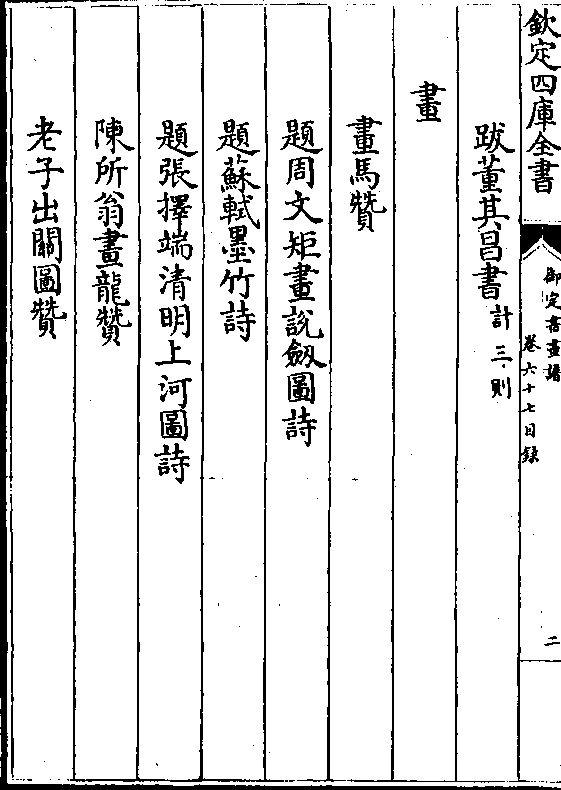 欽定四庫全書
御定書畫譜
卷六十七目錄
二
跋董其昌書計三則
畫
畫馬贊
題周文矩畫說劔圖詩
題蘇軾墨竹詩
題張擇端清明上河圖詩
陳所翁畫龍贊
老子出關圖贊